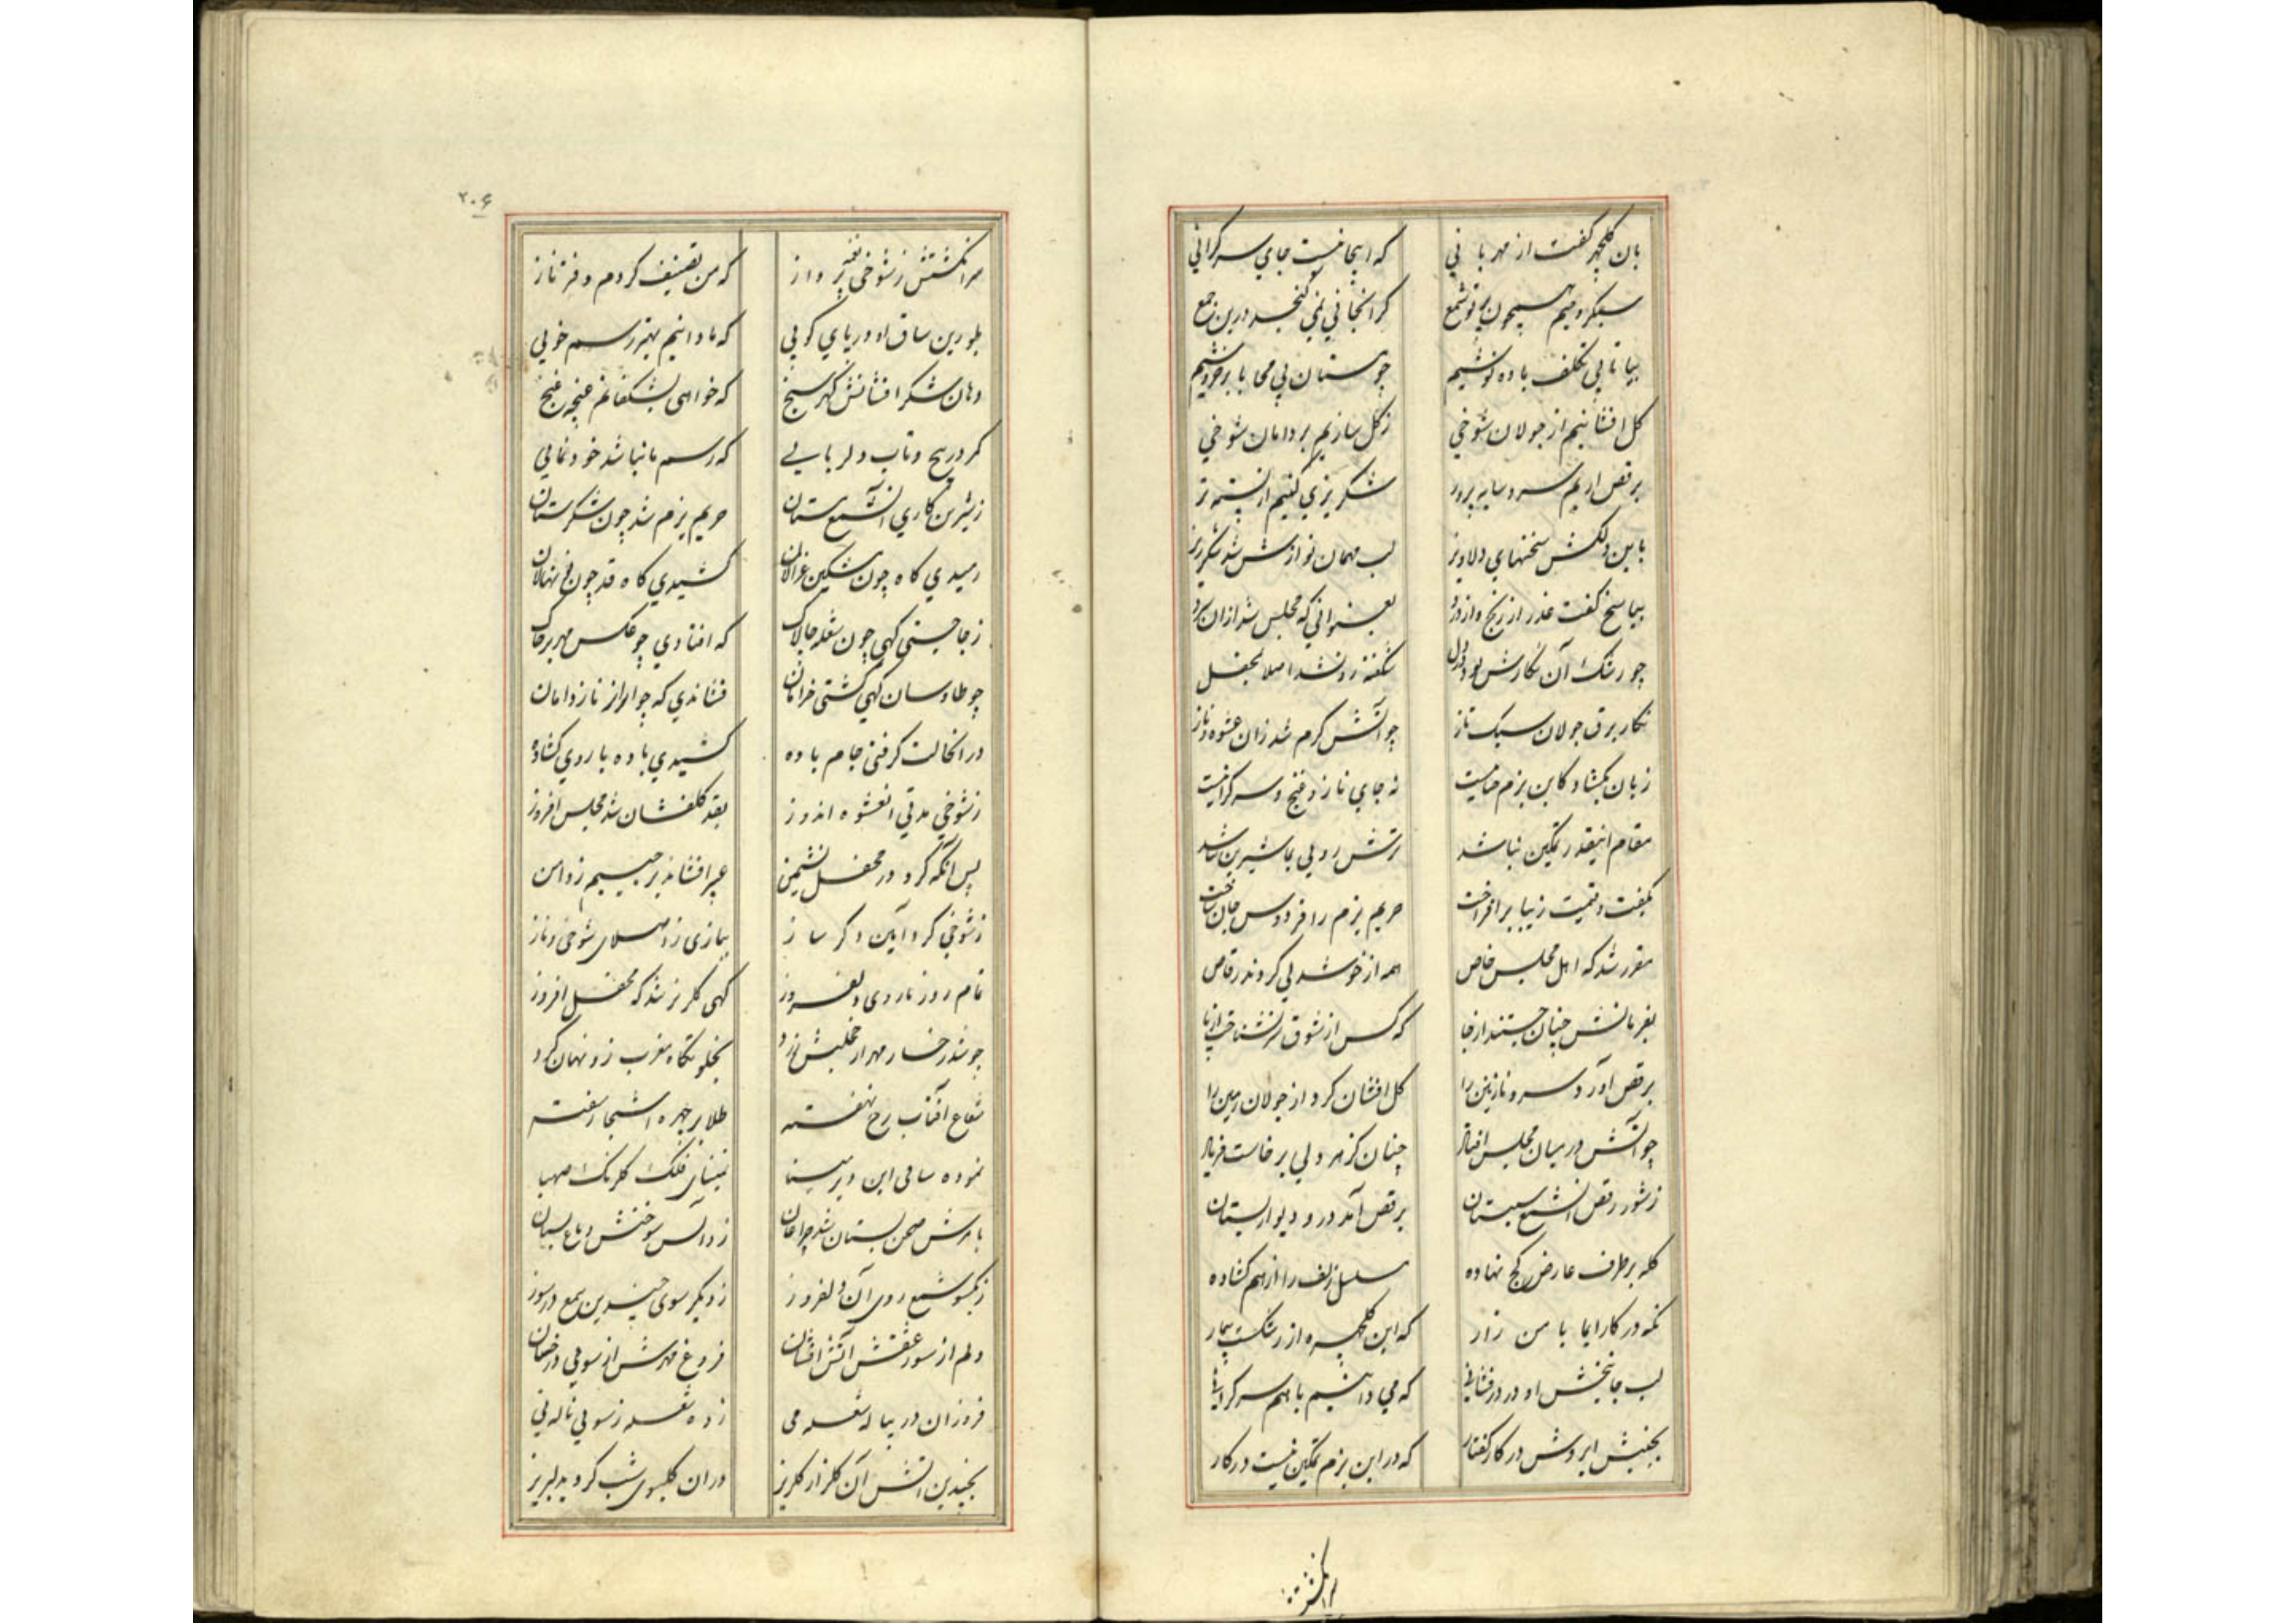 بان کلچهر کفت از مهربانی که اینجا نیست جای سرکرانی
سبکرومیم همچون پرتو شمع کرانجانی نمی کنجد درین جمع
بیا تا بی تکلف باده نوشیم چو مستان بی محابا برخروشیم
کل افشانیم از جولان شوخی ز کل سازیم بر دامان شوخی
برقص اریم سرو سایه پرور شکرریزی کنیم از پسته تر
باین دلکش سخنهای دلاویز لب مهمان نوازش شد شکرریز
بپاسخ کفت عذر از رنج و از درد بعنوانی که مجلس شد ازان سرد
چو رشک آن نکارش بود در دل شکفته رو نشد اصلا بمحفل
نکار برق جولان سبک تاز چو آتش کرم شد زان عشوه و ناز
زبان بکشاد کاین بزم نه جای ناز و غنج و سرکرانیست
مقام اینقدر تمکین نباشد ترش رویی بما شیرین نباشد
بکفت و قامت زیبا برافراخت حریم بزم را فردوس جان ساخت
مقرر شد که اهل مجلس خاص همه از خوشدلی کردند رقاص
بفرمانش چنان جستند از جا که کس از شوق سر نشناخت از پا
برقص آورد سرو نازنین را کل افشان کرد از جولان زمین را
چو آتش در میان مجلس افتاد چنان کز هر دلی برخاست فریاد
ز شور رقص آن شمع شبستان برقص آمد در و دیوار بستان
کله بر طرف عارض کج نهاده سلسل زلف را از هم کشاده
نکه در کار ایما با من زار که این کلچهره از رشکست بیمار
لب جانبخش او در درفشانی که می دانیم با هم سرکرانی
بجنبش ابروش در کار کفتار که در این بزم تمکین نیست در کار
سرانکشتش
۲۰۶
سرانکشتش ز شوخی نغمه پرداز که من تصنیف کردم دفتر ناز
بلورین ساق او در پای کوبی که ما دانیم بهتر رسم خوبی
دهان شکرافشانش کهرسنج که خواهی بشکفانم غنچه غنج
کمر در پیچ و تاب دلربایی که رسم ما نباشد خودنمایی
ز شیرین کاری آن شمع مستان حریم بزم شد چون شکرستان
رمیدی کاه چون مشکین غزالان کشیدی کاه قد چون نونهالان
ز جا جستی کهی چون شعله چالاک که افتادی چو عکس مهر بر خاک
چو طاوسان کهی کشتی خرامان فشاندی که چو ابر از ناز دامان
در انحالت کرفتی جام باده کشیدی باده با روی کشاده
ز شوخی مدتی انعشوه اندوز بقد کلفشان شد مجلس افروز
پس انکه کرد در محفل نشیمن عبیر افشاند بر جیبم ز دامن
ز شوخی کرد آیین دکر ساز ببازی زد صلای شوخی و ناز
تمام روز با روی دلفروز کهی کلریز شد که محفل افروز
چو شد رخسار مهر از خجلتش زرد بخلوتکاه مغرب رو نهان کرد
شعاع آفتاب رخ نهفته طلا بر چهره اشجار سفته
نموده ساقی این دیر مینا ز مینای فلک کلرنک صهبا
بامرش صحن بستان شد چراغان
ز یکسو شمع روی آن دلفروز ز دیکر سوی چندین شمع در سوز
دلم از سوز عشقش آتش افشان فروغ مهرش از سویی درخشان
فروزان در پیاله شعله می زده شعله ز سویی ناله نی
بچندین آتش آن کلزار کلریز دران کلبوی شب کردید لبریز